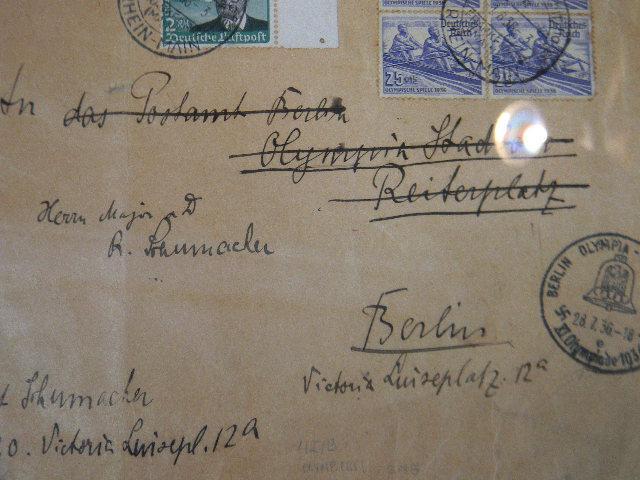 2 RM
Deutsche Luftpost
Deutsches Reich
Deutsches Reich
25
OLYMPISCHE SPIELE 1936
OLYMPISCHE SPIELE 1936
An das Postamt Berlin
Olympia Stadion
Reiterplatz
Herrn Major a D
R. Schumacher
Berlin
Victoria Luiseplatz. 12a
BERLIN OLYMPIA-
28.7.36.-18
e
XI. Olympiade 193
Schumacher
Victoria Luisepl. 12a